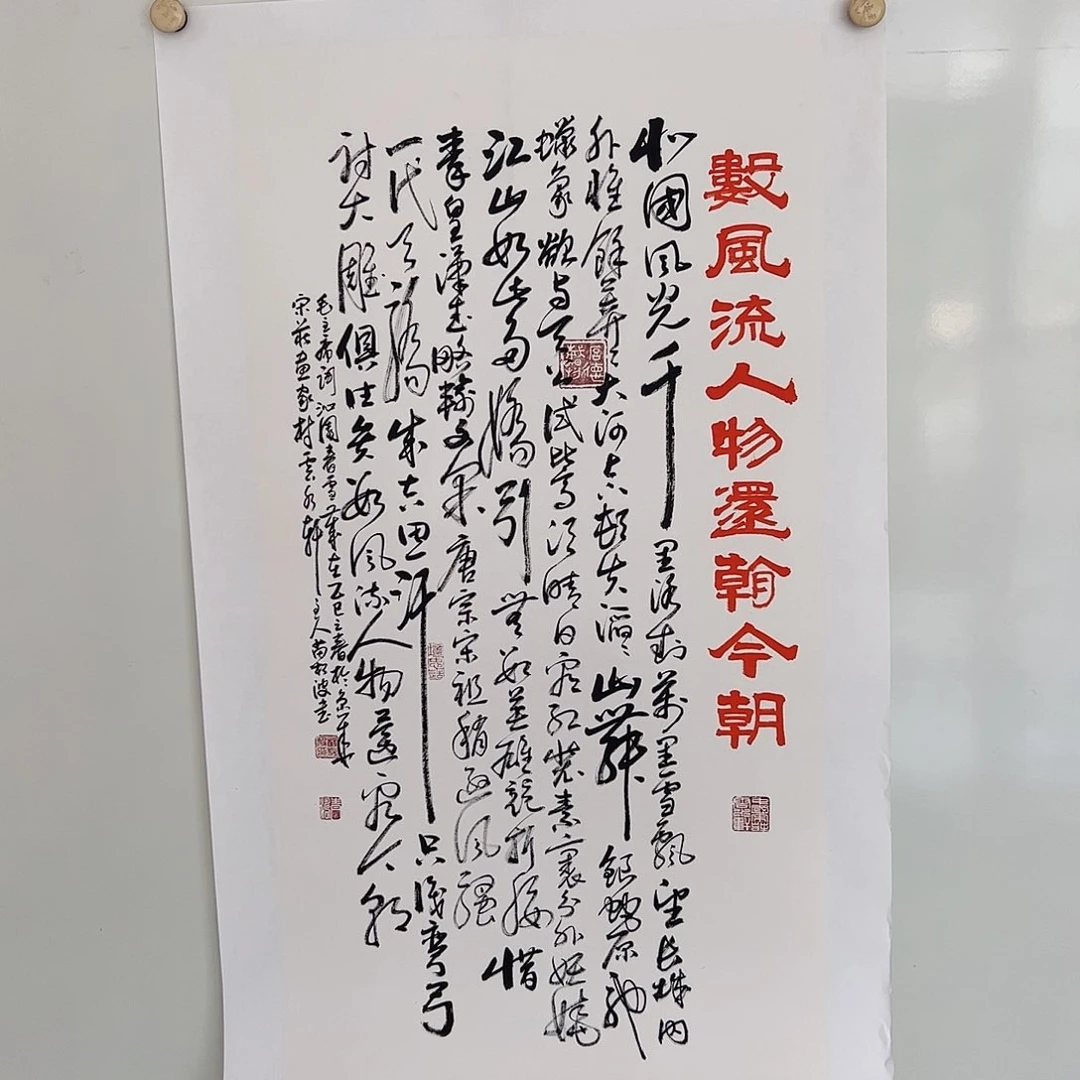 數風流人物還看今朝
北國風光千里冰封萬里雪飄望長城內
外惟餘莽〻大河上下頓失滔〻山舞銀蛇原馳
蠟象欲與天公試比高須晴日看紅裝素裹分外妖嬈
江山如此多嬌引無數英雄競折腰惜
秦皇漢武略輸文采唐宗宋祖稍遜風騷
一代天驕成吉思汗只識彎弓
射大雕俱往矣數風流人物還看今朝
毛主席詞沁園春雪歲在乙巳立春於京華
宋莊畫家村雲水軒主人苗波書